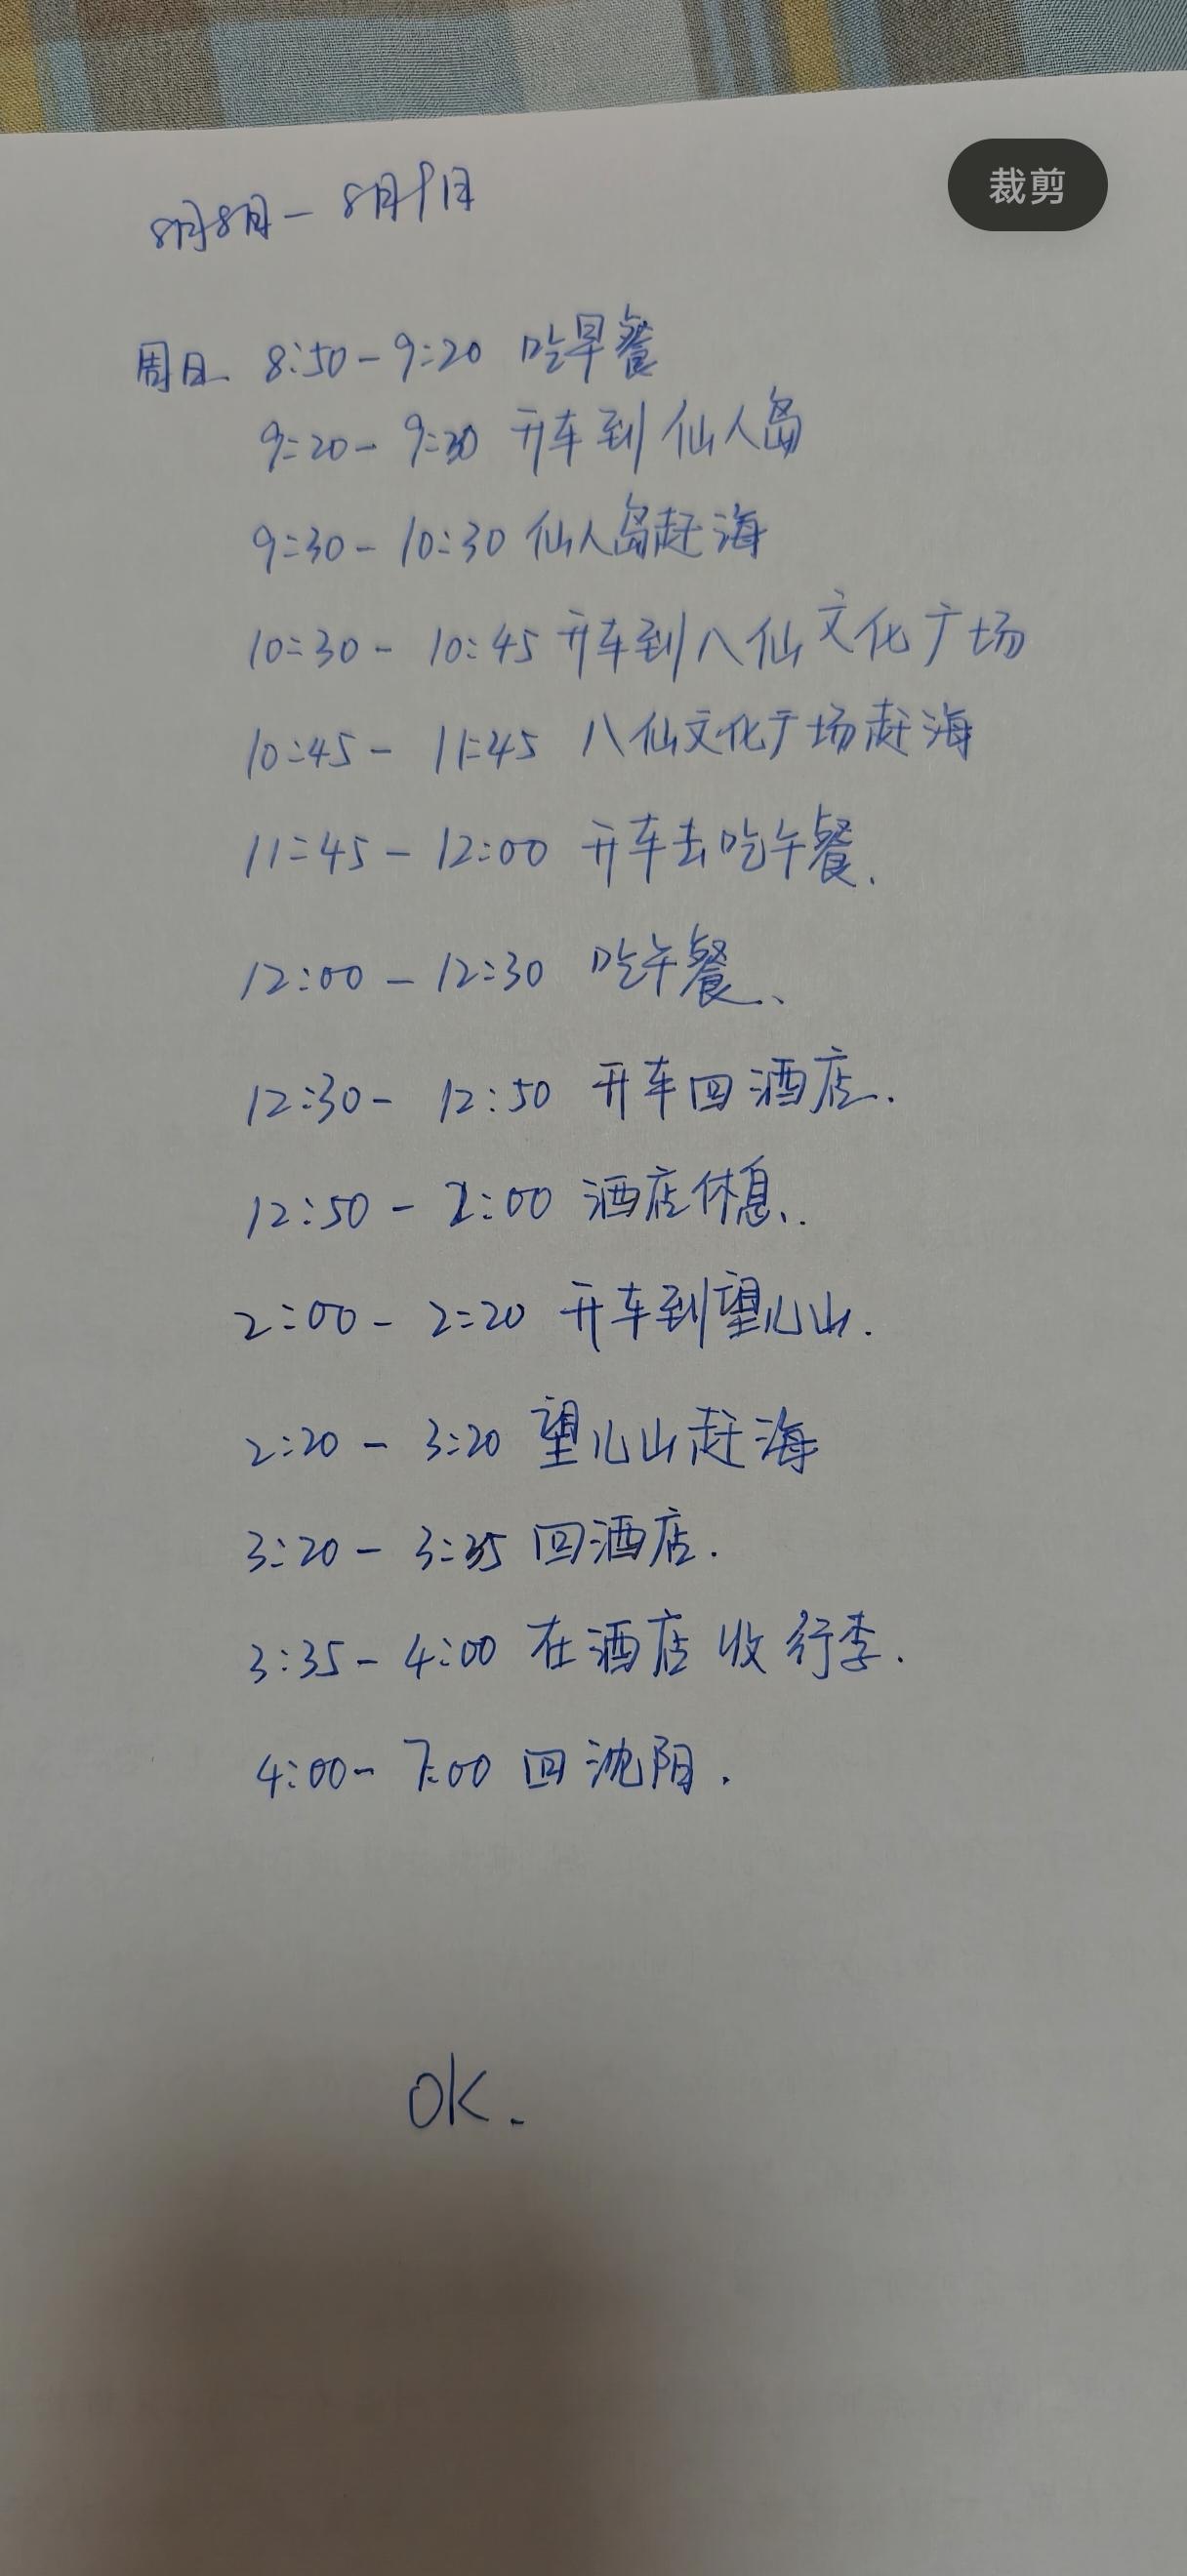 裁剪
8月8日－8月9日
周日 8:50－9:20 吃早餐
9:20－9:30 开车到仙人岛
9:30－10:30 仙人岛赶海
10:30－10:45 开车到八仙文化广场
10:45－11:45 八仙文化广场赶海
11:45－12:00 开车去吃午餐.
12:00－12:30 吃午餐.
12:30－12:50 开车回酒店.
12:50－2:00 酒店休息.
2:00－2:20 开车到望儿山.
2:20－3:20 望儿山赶海
3:20－3:35 回酒店.
3:35－4:00 在酒店收行李.
4:00－7:00 回沈阳.
OK.